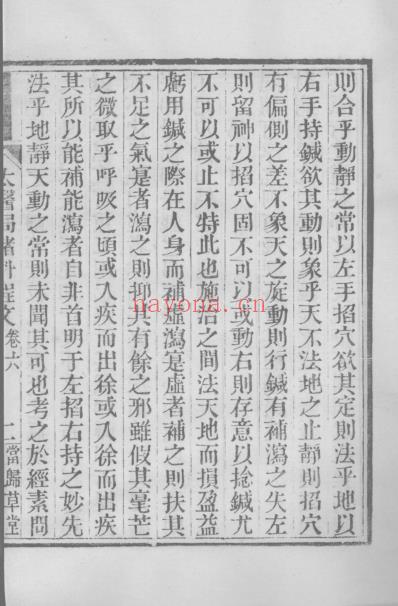 則合乎動靜之常以左手搯穴欲其定則法乎地以
右手持鍼欲其動則象乎天不法地之止靜則搯穴
有偏側之差不象天之旋動則行鍼有補瀉之失左
則留神以搯穴固不可以或動右則存意以捻鍼尤
不可以或止不特此也施治之間法天地而損盈益
虧用鍼之際在人身而補虛瀉寔虛者補之則扶其
不足之氣寔者瀉之則抑其有餘之邪雖假其毫芒
之微取乎呼吸之頃或入疾而出徐或入徐而出疾
其所以能補能瀉者自非首明于左搯右持之妙先
法乎地靜天動之常則未聞其可也考之於經素問
太醫局諸科程文 卷六 二 當歸草堂
nayona.cn